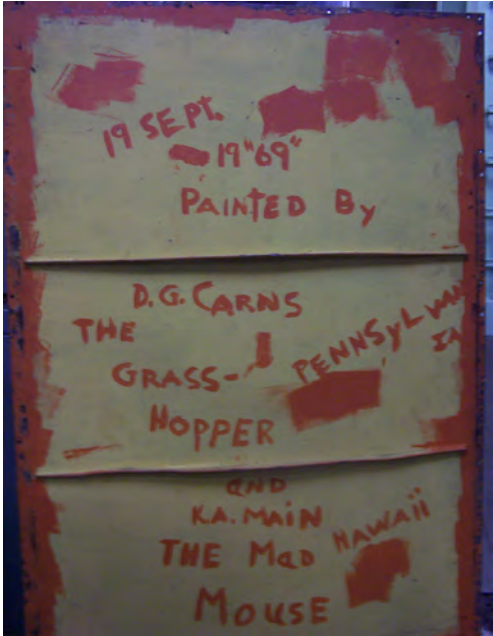 19 SEPT.
19"69"
PAINTED By
D.G. CARNS
THE
GRASS-
HOPPER
PENNSyLVAN
IA
aND
K.A. MAiN
THE MaD
MOUSE
HAWAii